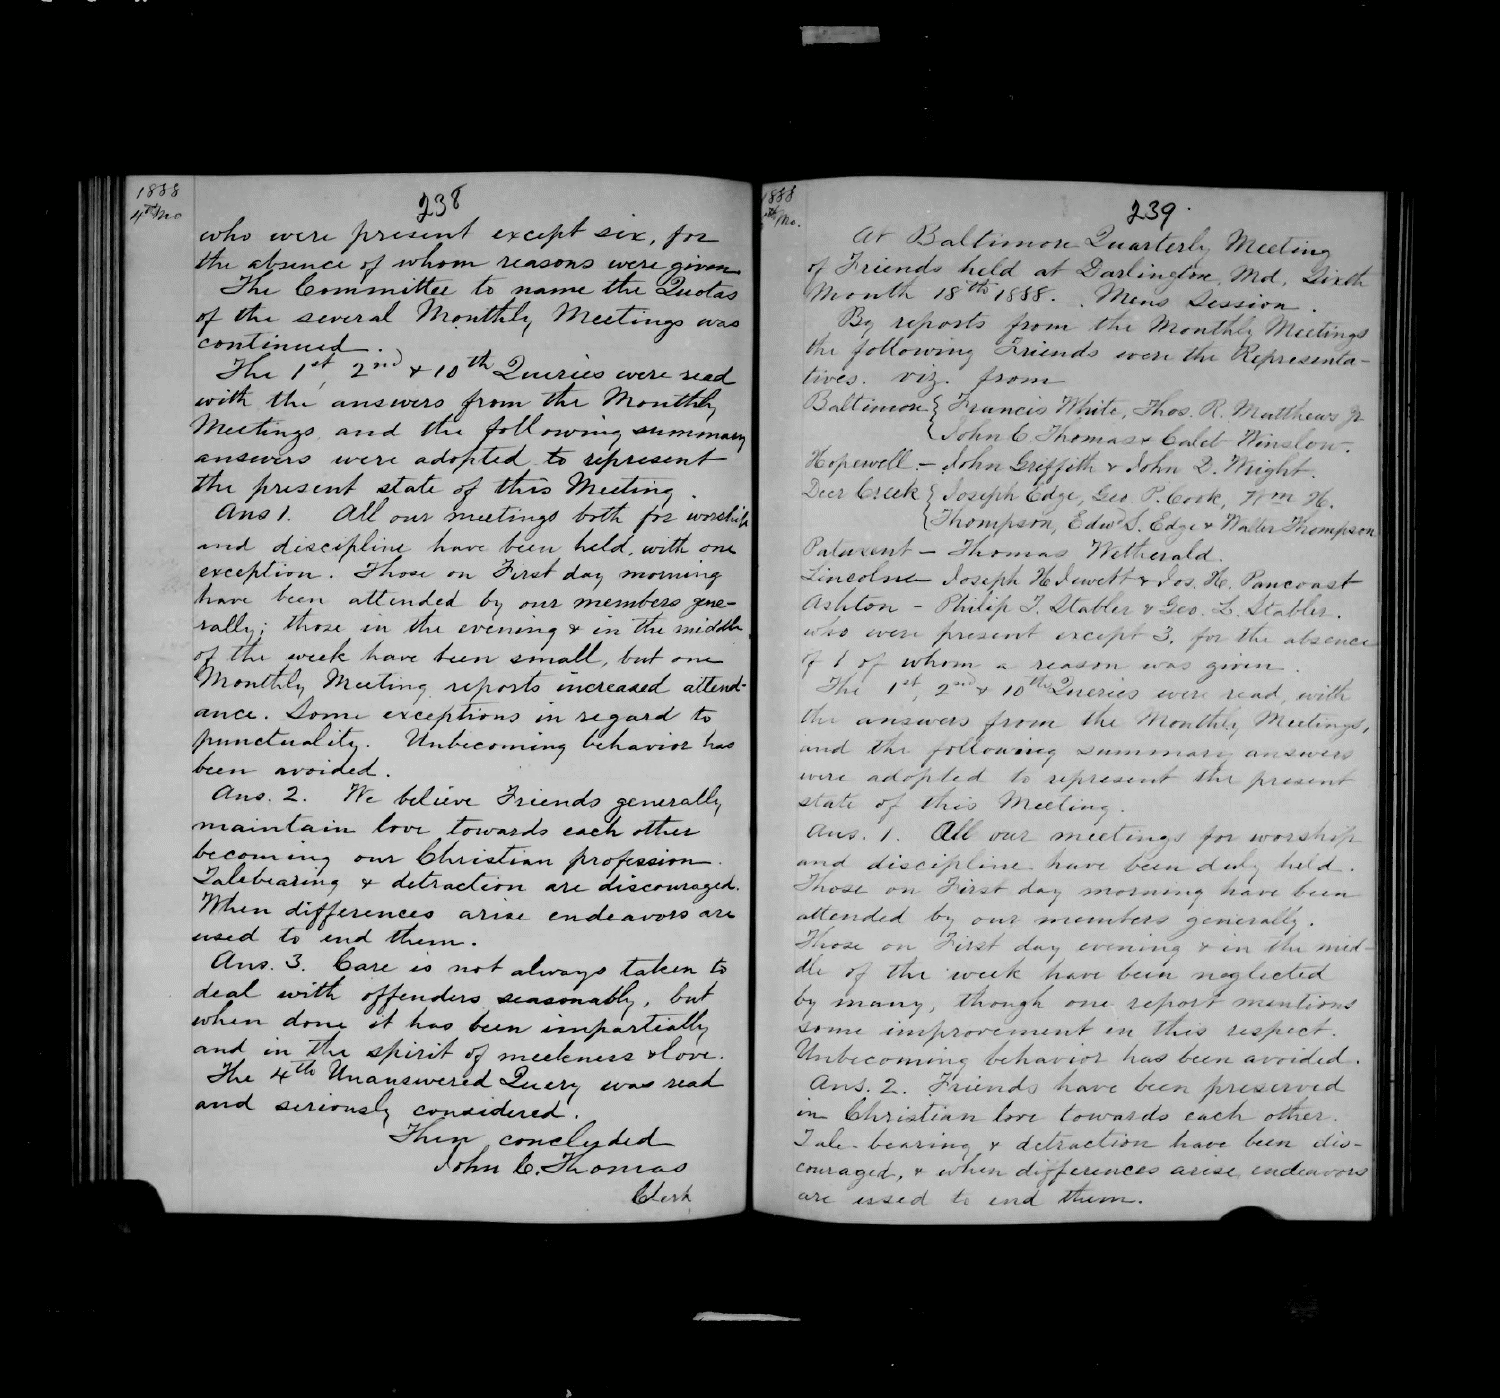 1888
4th Mo
238
who were present except six, for
the absence of whom reasons were given
The Committee to name the Quotas
of the several Monthly Meetings was
continued.
The 1st, 2nd & 10th Queries were read
with the answers from the Monthly
Meetings, and the following summary
answers were adopted to represent
the present state of this Meeting.
Ans 1. All our meetings both for worship
and discipline have been held, with one
exception. Those on First day morning
have been attended by our members gene-
rally; those in the evening & in the middle
of the week have been small, but one
Monthly Meeting reports increased attend-
ance. Some exceptions in regard to
punctuality. Unbecoming behavior has
been avoided.
Ans. 2. We believe Friends generally
maintain love towards each other
becoming our Christian profession.
Talebearing & detraction are discouraged.
When differences arise endeavors are
used to end them.
Ans. 3. Care is not always taken to
deal with offenders seasonably, but
when done it has been impartially
and in the spirit of meekness & love.
The 4th Unanswered Query was read
and seriously considered.
Then concluded
John C. Thomas
Clerk
1888
Mo.
239
At Baltimore Quarterly Meeting
of Friends held at Darlington, Md, Sixth
Month 18th 1888. Mens Session.
By reports from the Monthly Meetings
the following Friends were the Representa-
tives. viz. from
Baltimore { Francis White, Thos. R. Matthews Jr
{ John C. Thomas & Caleb Winslow.
Hopewell - John Griffith & John D. Wright.
Deer Creek { Joseph Edge, Geo. P. Cook, Wm H.
{ Thompson, Edwd S. Edge & Walter Thompson
Patuxent - Thomas Wetherald.
Lincoln - Joseph H Jewett & Jos. H. Pancoast
Ashton - Philip T. Stabler & Geo. L. Stabler.
who were present except 3, for the absence
of 1 of whom a reason was given.
The 1st, 2nd & 10th Queries were read, with
the answers from the Monthly Meetings,
and the following summary answers
were adopted to represent the present
state of this Meeting.
Ans. 1. All our meetings for worship
and discipline have been duly held.
Those on First day morning have been
attended by our members generally.
Those on First day evening & in the mid-
dle of the week have been neglected
by many, though one report mentions
some improvement in this respect.
Unbecoming behavior has been avoided.
Ans. 2. Friends have been preserved
in Christian love towards each other.
Tale-bearing & detraction have been dis-
couraged, & when differences arise endeavors
are used to end them.